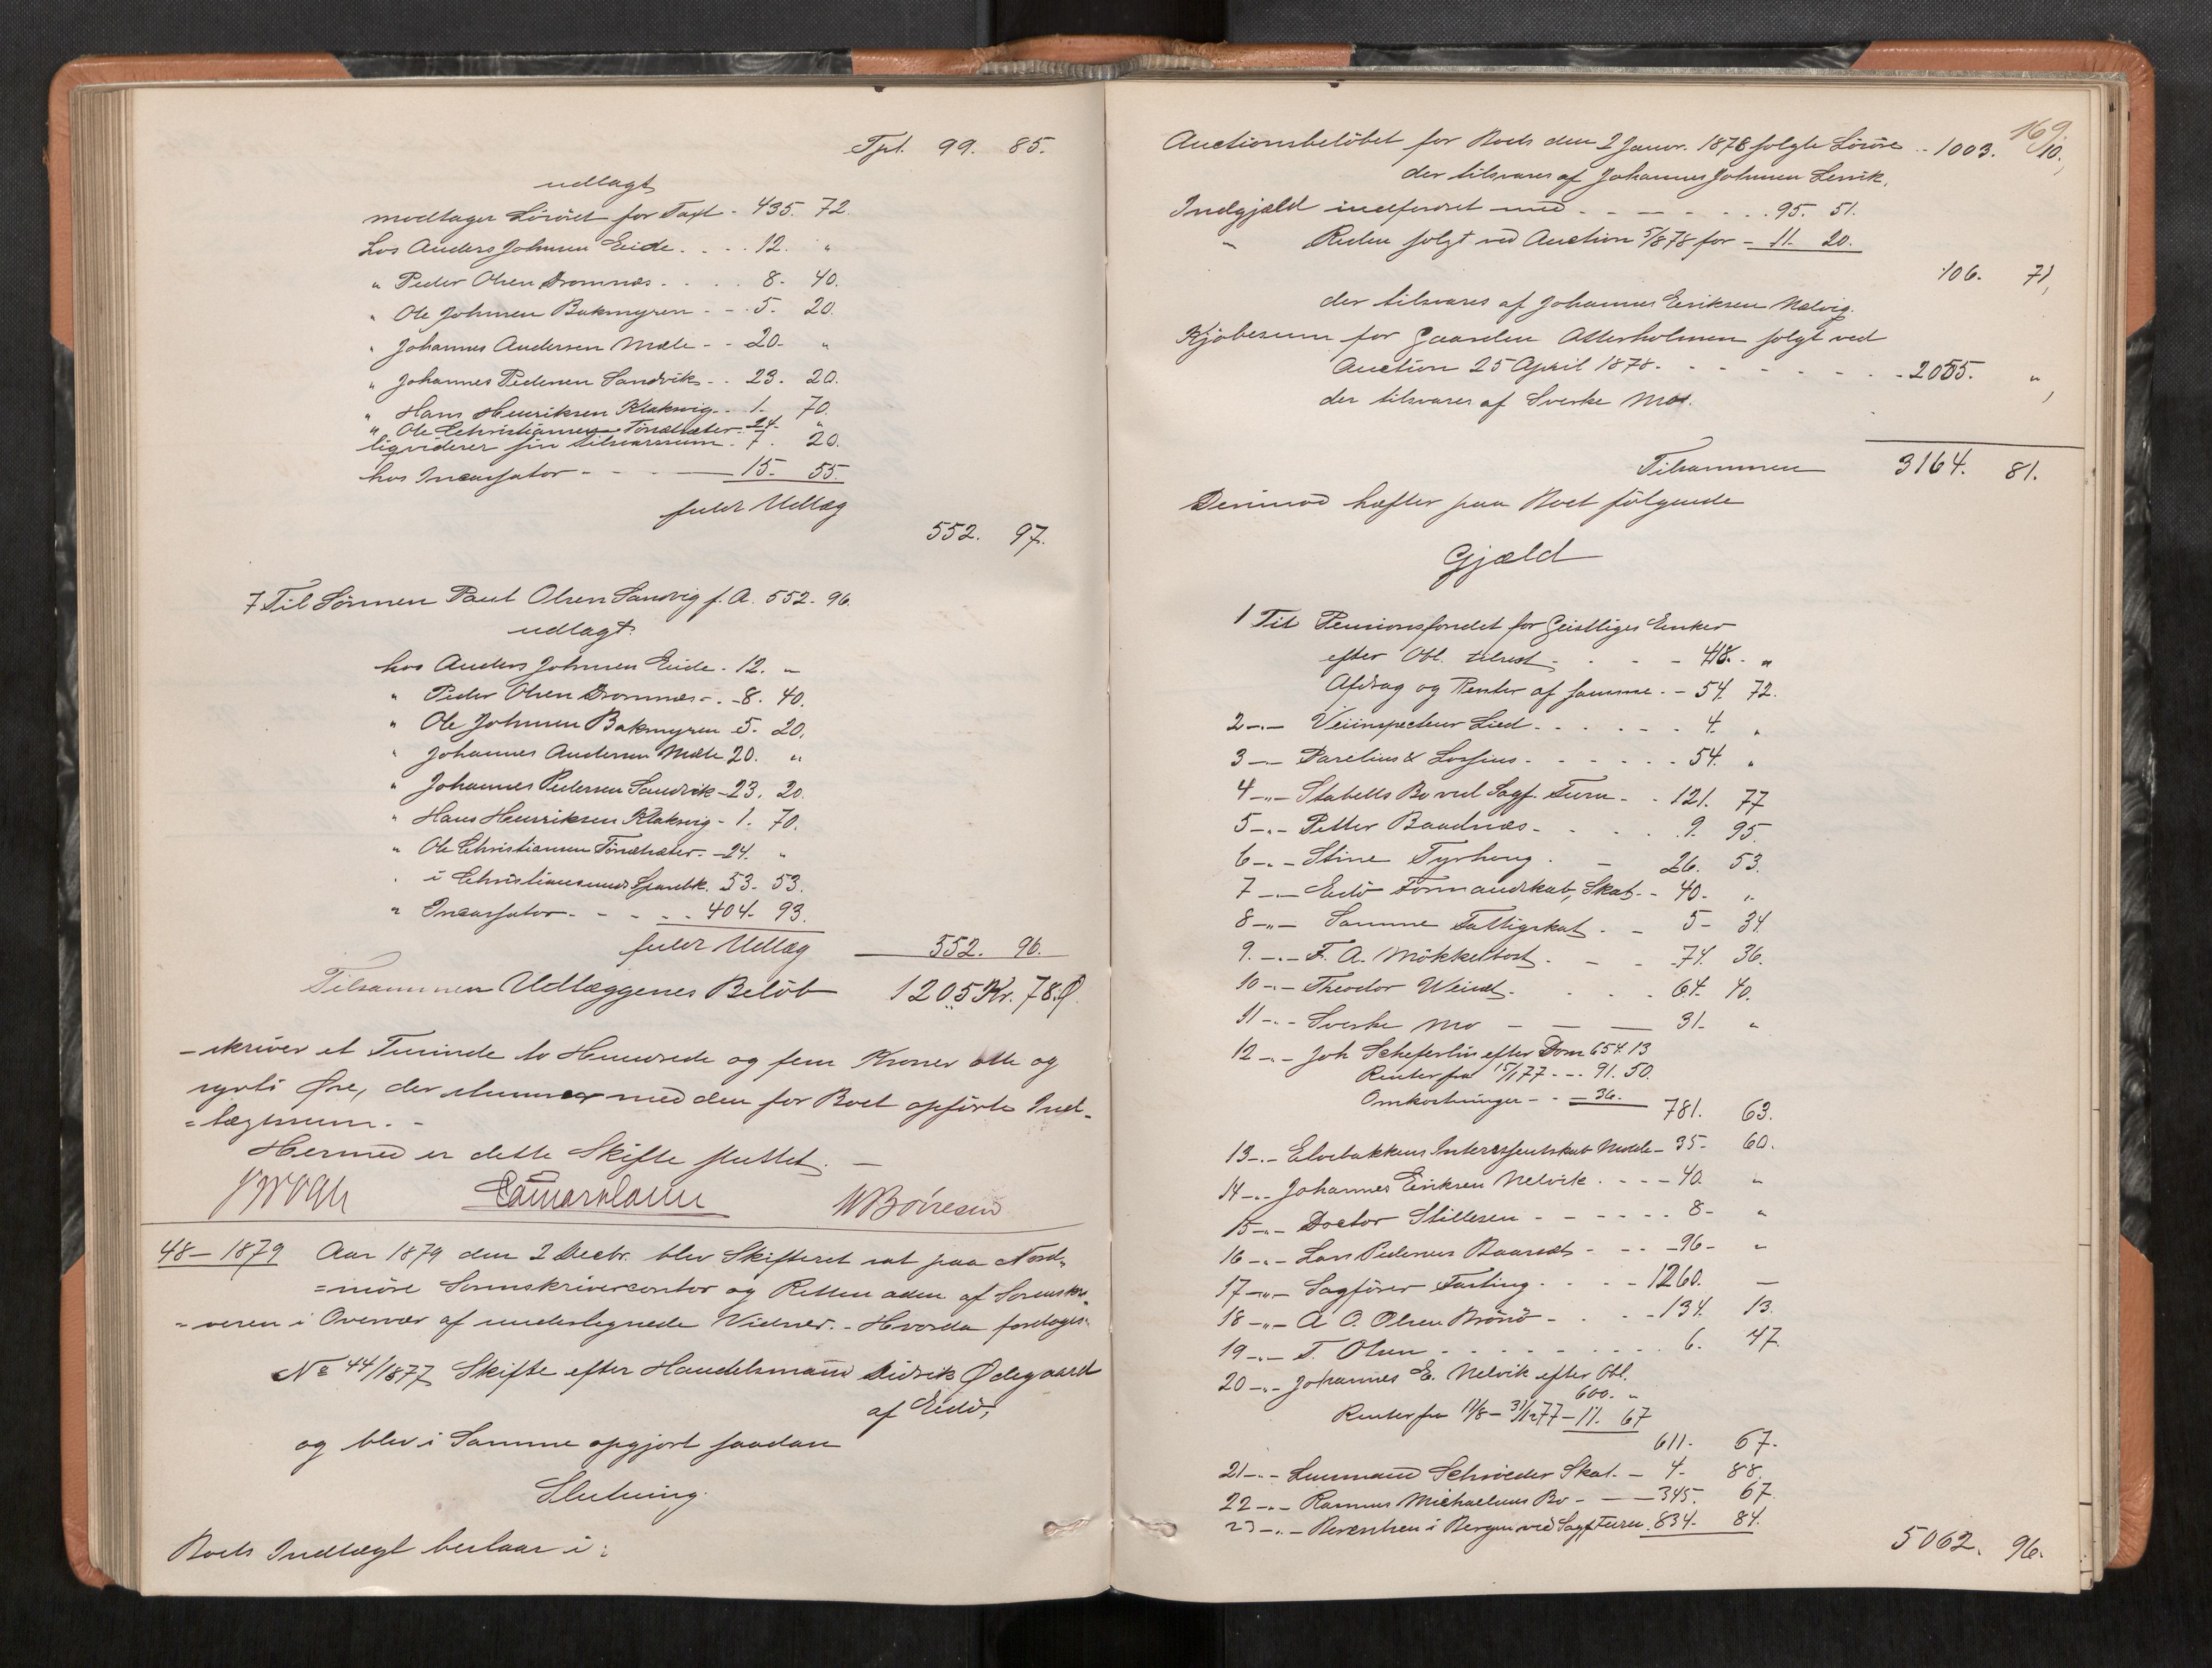 Tpt. 99. 85.
udlagt
modtager Lösöret for Taxt - 435. 72.
hos Anders Johnsen Eide. - - - 12. "
" Peder Olsen Dromnæs - - - 8. 40.
" Ole Johnsen Bakmyren - - 5. 20.
" Johannes Andersen Mæle - - 20. "
" Johannes Pedersen Sandvik - - 23. 20.
" Hans Henriksen Klakvig - - 1. 70.
" Ole Christiansen Tönsæter - 24. "
liqviderer sin Tilsvarssum - 7. 20.
hos Incassator - - - 15. 55.
fuldt Udlæg
552. 97.
7 Til Sönnen Paul Olsen Sandvig f. A. 552. 96.
udlagt
hos Anders Johnsen Eide - 12. "
" Peder Olsen Dromnæs - - 8. 40.
" Ole Johnsen Bakmyren 5. 20.
" Johannes Andersen Mæle 20. "
" Johannes Pedersen Sandvik - 23. 20.
" Hans Henriksen Klakvig - 1. 70.
" Ole Christiansen Tönsæter - 24. "
" i Christianssunds Sparebk. 53. 53.
" Incassator - - - 404. 93.
fuldt Udlæg 552. 96.
Tilsammen Udlæggenes Belöb 1205 Kr. 78 Ø.
- skriver et Tusinde to Hundrede og fem Kroner otte og
sytti Øre, der stemmer med den for Boet opförte Ind-
= tægtssum. -
Hermed er dette Skifte sluttet. -
W Börresen
48 - 1879 Aar 1879 den 2 Decbr. blev Skifteret sat paa Nord-
= möre Sorenskrivercontor og Retten adm. af Sorenskri-
= veren i Overvær af undertegnede Vidner. - Hvorda foretoges:
No 44/1877 Skifte efter Handelsmand Didrik Ødegaard
af Eidö,
og blev i Samme opgjort saadan
Slutning.
Boets Indtægt bestaar i:
169.
Auctionsbelöbet for Boets den 2 Januar. 1878 solgte Lösöre - 1003. 10.
der tilsvares af Johannes Johnsen Lervik.
Indgjæld indfordret med - - - - 95. 51.
" Resten solgt ved Auction 5/8 78 for - 11. 20.
106. 71,
der tilsvares af Johannes Eeriksen Nelvig.
Kjöbesum for Gaarden Atterholmen solgt ved
Auction 25 April 1878. - - - - 2055. "
der tilsvares af Sverke Mo.
Tilsammen 3164. 81.
Derimod hæfter paa Boet fölgende
Gjæld
1 Til Pensionsfondet for Geistliges Enker
efter Obl. tilrest - - - 418. "
Afdrag og Renter af samme - 54. 72.
2 -"- Veiinspecteur Lied - - - 4. "
3 -"- Parelius & Lossius - - - 54. "
4 -"- Stabells Bo ved Sagf. Furu - - 121. 77
5 -"- Petter Baadnæs - - - 9. 95.
6 -"- Stine Tyrhoug. - 26. 53.
7 -"- Eidö Formandskab, Skat - 40. "
8 -"- Samme Fattigskat - - 5. 34
9. -"- F. A. Mökkelbost - - 74. 36.
10 -"- Theodor Weidt - - - 64. 40.
11 -"- Sverke Mo - - - 31. "
12 -"- Joh Scheferlin efter Dom 654. 13
Renter fra 15/1 77 - - - 91. 50.
Omkostninger - - 36. 781. 63.
13 -"- Elvebakkens Interessentskab Molde - 35. 60.
14 -"- Johannes Eriksen Nelvik - - - 40. "
15 -"- Doctor Stillesen - - - 8. "
16 -"- Lars Pedersen Baarsæt - - - 96. "
17 -"- Sagförer Fasting - - - 1260. -
18 -"- A O. Olsen Brönö - - - 134. 13.
19 -"- T. Olsen - - - 6. 47
20 -"- Johannes E. Nelvik efter Obl.
600. "
Renter fra 11/8 - 31/12 77 - 11. 67
611. 67.
21 -"- Lensmand Schröeder Skat - 4. 88.
22 -"- Rasmus Michaelsens Bo - - 345. 67.
23 -"- Berentsen i Bergen ved Sagf Furu 834. 84.
5062. 96.